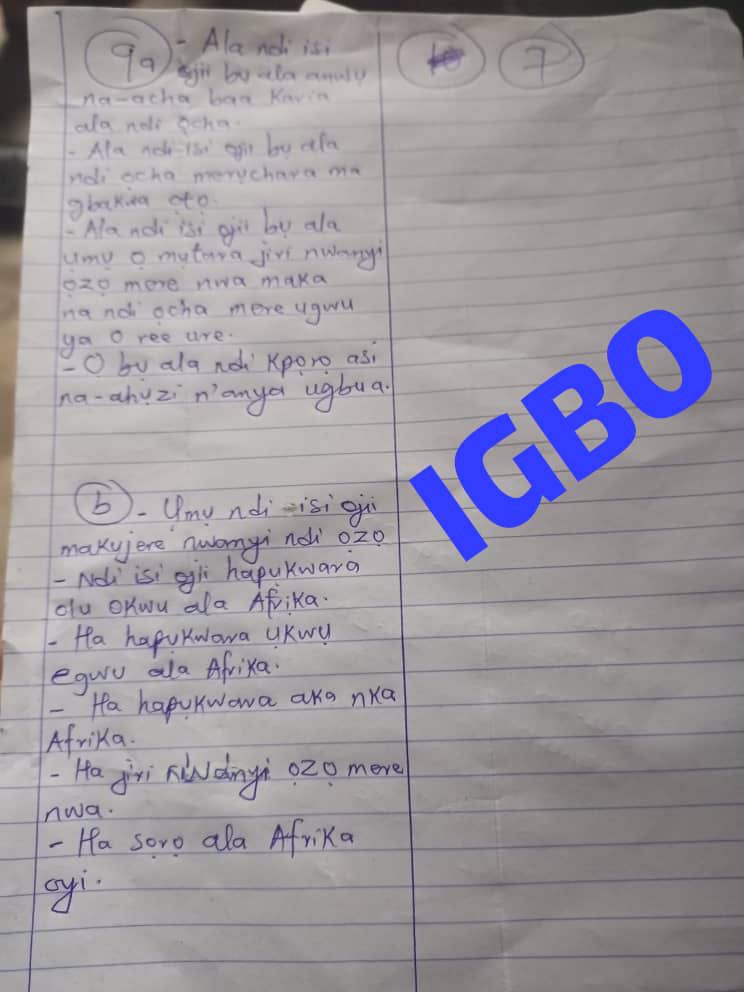 9a - Ala ndi isi
ojii bụ ala anwụ
na-acha baa karịa
ala ndi ọcha.
- Ala ndi isi ojii bụ ala
ndi ọcha merụchara ma
gbakụta ọtọ.
- Ala ndi isi ojii bụ ala
ụmụ ọ mụtara jiri nwanyi
ọzọ mere nwa maka
na ndi ọcha mere ugwu
ya o ree ure.
- Ọ bụ ala ndi kpọrọ asi
na-ahụzi n'anya ugbua.
b - Ụmụ ndi isi ojii
makụjere nwanyi ndi ọzọ
- Ndi isi ojii hapụkwara
olu okwu ala Afrika.
- Ha hapụkwara ụkwụ
egwu ala Afrika.
- Ha hapụkwara aka nka
Afrika.
- Ha jiri nwanyi ọzọ mere
nwa.
- Ha sọrọ ala Afrika
oyi.
7
IGBO